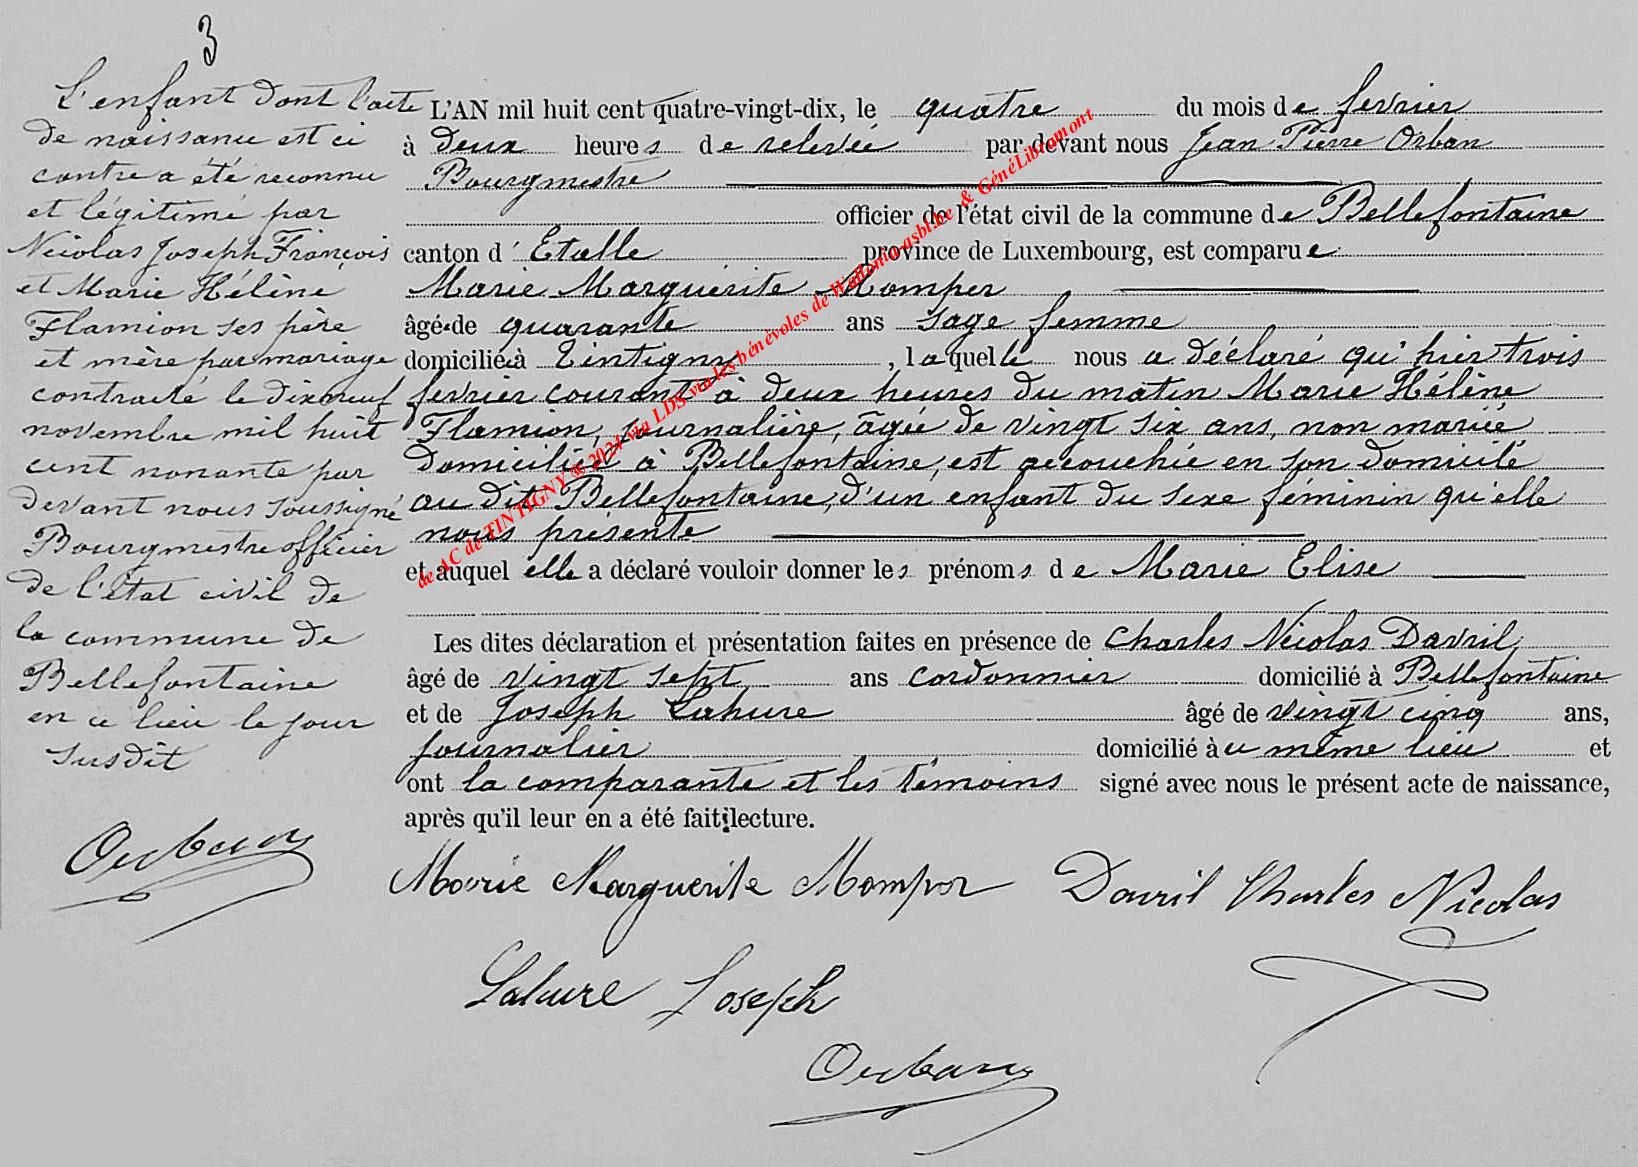 3
L'enfant dont l'acte
de naissance est ci
contre a été reconnu
et légitimé par
Nicolas Joseph François
et Marie Hélène
Flamion ses père
et mère par mariage
contracté le dixneuf
novembre mil huit
cent nonante par
devant nous soussigné
Bourgmestre officier
de l'état civil de
la commune de
Bellefontaine
en ce lieu le jour
susdit
Orban
L'AN mil huit cent quatre-vingt-dix, le quatre du mois de fevrier
à deux heures de relevée par devant nous Jean Pierre Orban
Bourgmestre
officier de l'état civil de la commune de Bellefontaine
canton d'Etalle province de Luxembourg, est comparue
Marie Marguerite Momper
âgée de quarante ans sage femme
domiciliée à Tintigny, laquelle nous a déclaré qu'hier trois
fevrier courant à deux heures du matin Marie Hélène
Flamion, journalière, âgée de vingt six ans, non mariée
domiciliée à Bellefontaine, est accouchée en son domicile
au dit Bellefontaine, d'un enfant du sexe féminin qu'elle
nous présente
et auquel elle a déclaré vouloir donner les prénoms de Marie Elise
Les dites déclaration et présentation faites en présence de Charles Nicolas Davril
âgé de vingt sept ans cordonnier domicilié à Bellefontaine
et de Joseph Lahure âgé de vingt cinq ans,
journalier domicilié au même lieu et
ont la comparante et les témoins signé avec nous le présent acte de naissance,
après qu'il leur en a été fait lecture.
Marie Marguerite Momper Davril Charles Nicolas
Lahure Joseph
Orban
de AC de TINTIGNY © 2024 via LDS via les bénévoles de Wallonia-asbl.be & GénéLibramont